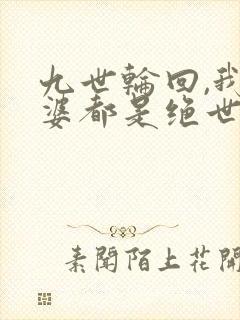 九世輪回,我
婆都是绝世
素聞陌上花開